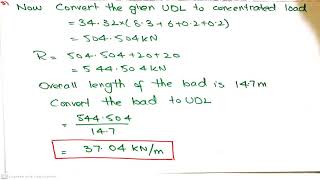 Now Convert the given UDL to concentrated load
= 34.32×(8.3+6+0.2+0.2)
= 504.504 KN
R = 504.504+20+20
= 544.504 KN
Overall length of the load is 14.7m
Convert the load to UDL
= 544.504
14.7
= 37.04 KN/m